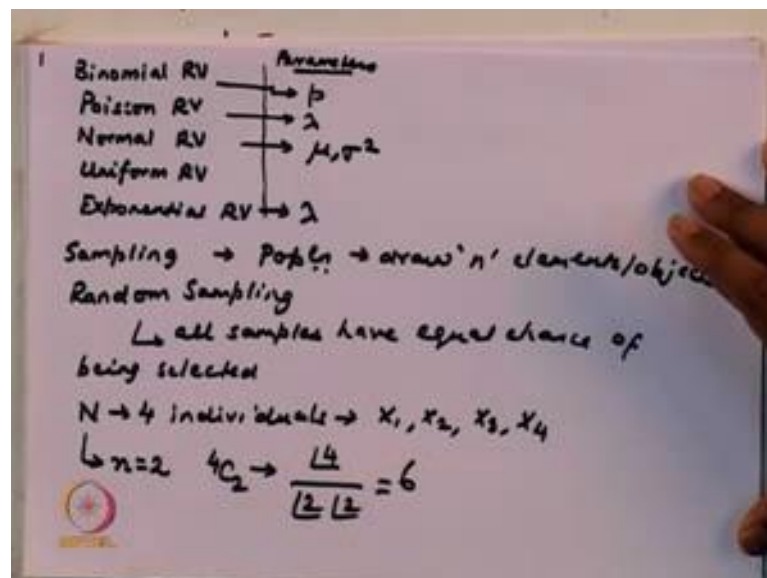 1
Parameters
Binomial RV → p
Poisson RV → λ
Normal RV → μ, σ²
Uniform RV
Exponential RV → λ
Sampling → Popln → draw 'n' elements/objec
Random Sampling
↳ all samples have equal chance of
being selected
N → 4 individuals → x₁, x₂, x₃, x₄
↳ n=2 ⁴C₂ → ⌊4 / ⌊2 ⌊2 = 6